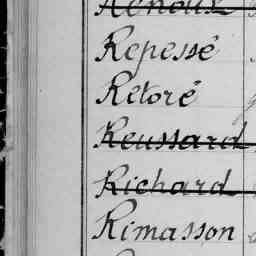 Renoux
Repessé
Retoré
Reussard
Richard
Rimasson